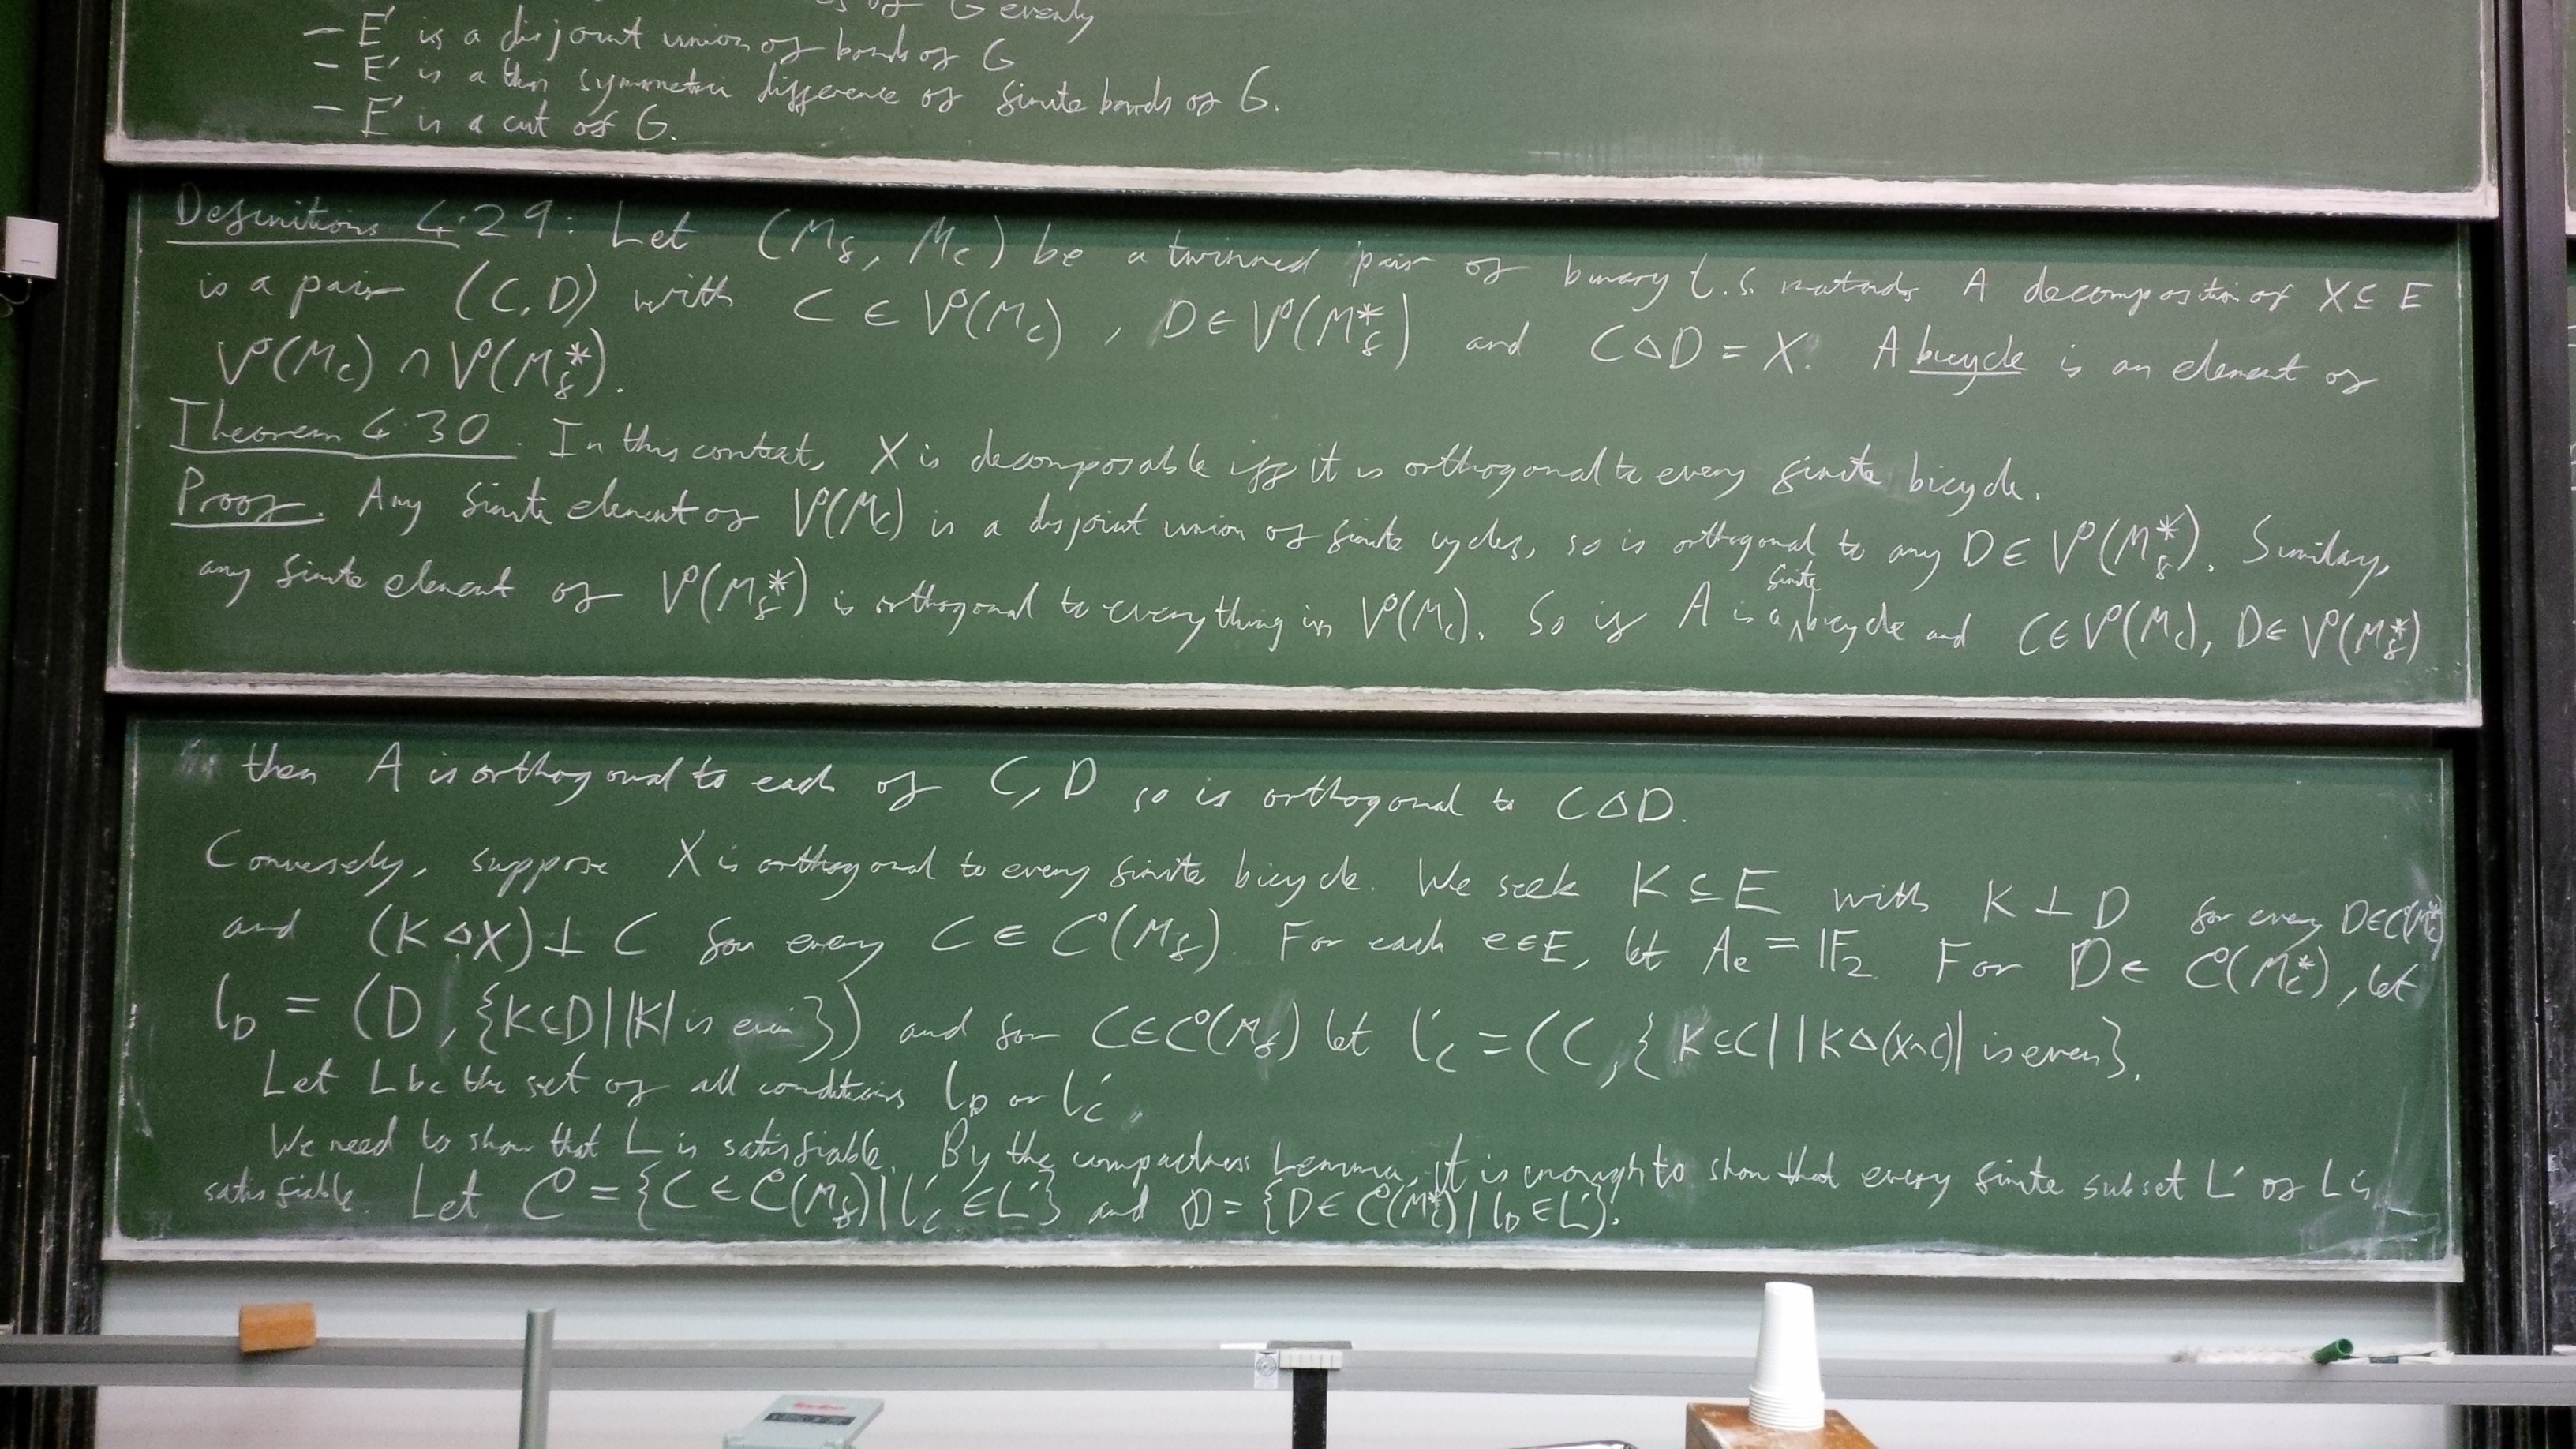 of G evenly
– E' is a disjoint union of bonds of G
– E' is a thin symmetric difference of finite bonds of G.
– E' is a cut of G.
Definitions 4.29: Let (M_f, M_c) be a twinned pair of binary t.s. matroids. A decomposition of X ⊆ E
is a pair (C, D) with C ∈ V°(M_c), D ∈ V°(M_f^*) and C △ D = X. A bicycle is an element of
V°(M_c) ∩ V°(M_f^*).
Theorem 4.30. In this context, X is decomposable iff it is orthogonal to every finite bicycle.
Proof. Any finite element of V°(M_c) is a disjoint union of finite cycles, so is orthogonal to any D ∈ V°(M_f^*). Similarly,
any finite element of V°(M_f^*) is orthogonal to everything in V°(M_c). So if A is a finite bicycle and C ∈ V°(M_c), D ∈ V°(M_f^*)
then A is orthogonal to each of C, D so is orthogonal to C △ D.
Conversely, suppose X is orthogonal to every finite bicycle. We seek K ⊆ E with K ⊥ D for every D ∈ C°(M_c^*)
and (K △ X) ⊥ C for every C ∈ C°(M_f). For each e ∈ E, let A_e = 𝔽_2. For D ∈ C°(M_c^*), let
l_D = (D, {K ⊆ D | |K| is even}) and for C ∈ C°(M_f) let l'_C = (C, {K ⊆ C | |K △ (X ∩ C)| is even}.
Let L be the set of all conditions l_D or l'_C.
We need to show that L is satisfiable. By the compactness Lemma, it is enough to show that every finite subset L' of L is
satisfiable. Let C° = {C ∈ C°(M_f) | l'_C ∈ L'} and 𝔻 = {D ∈ C°(M_c^*) | l_D ∈ L'}.